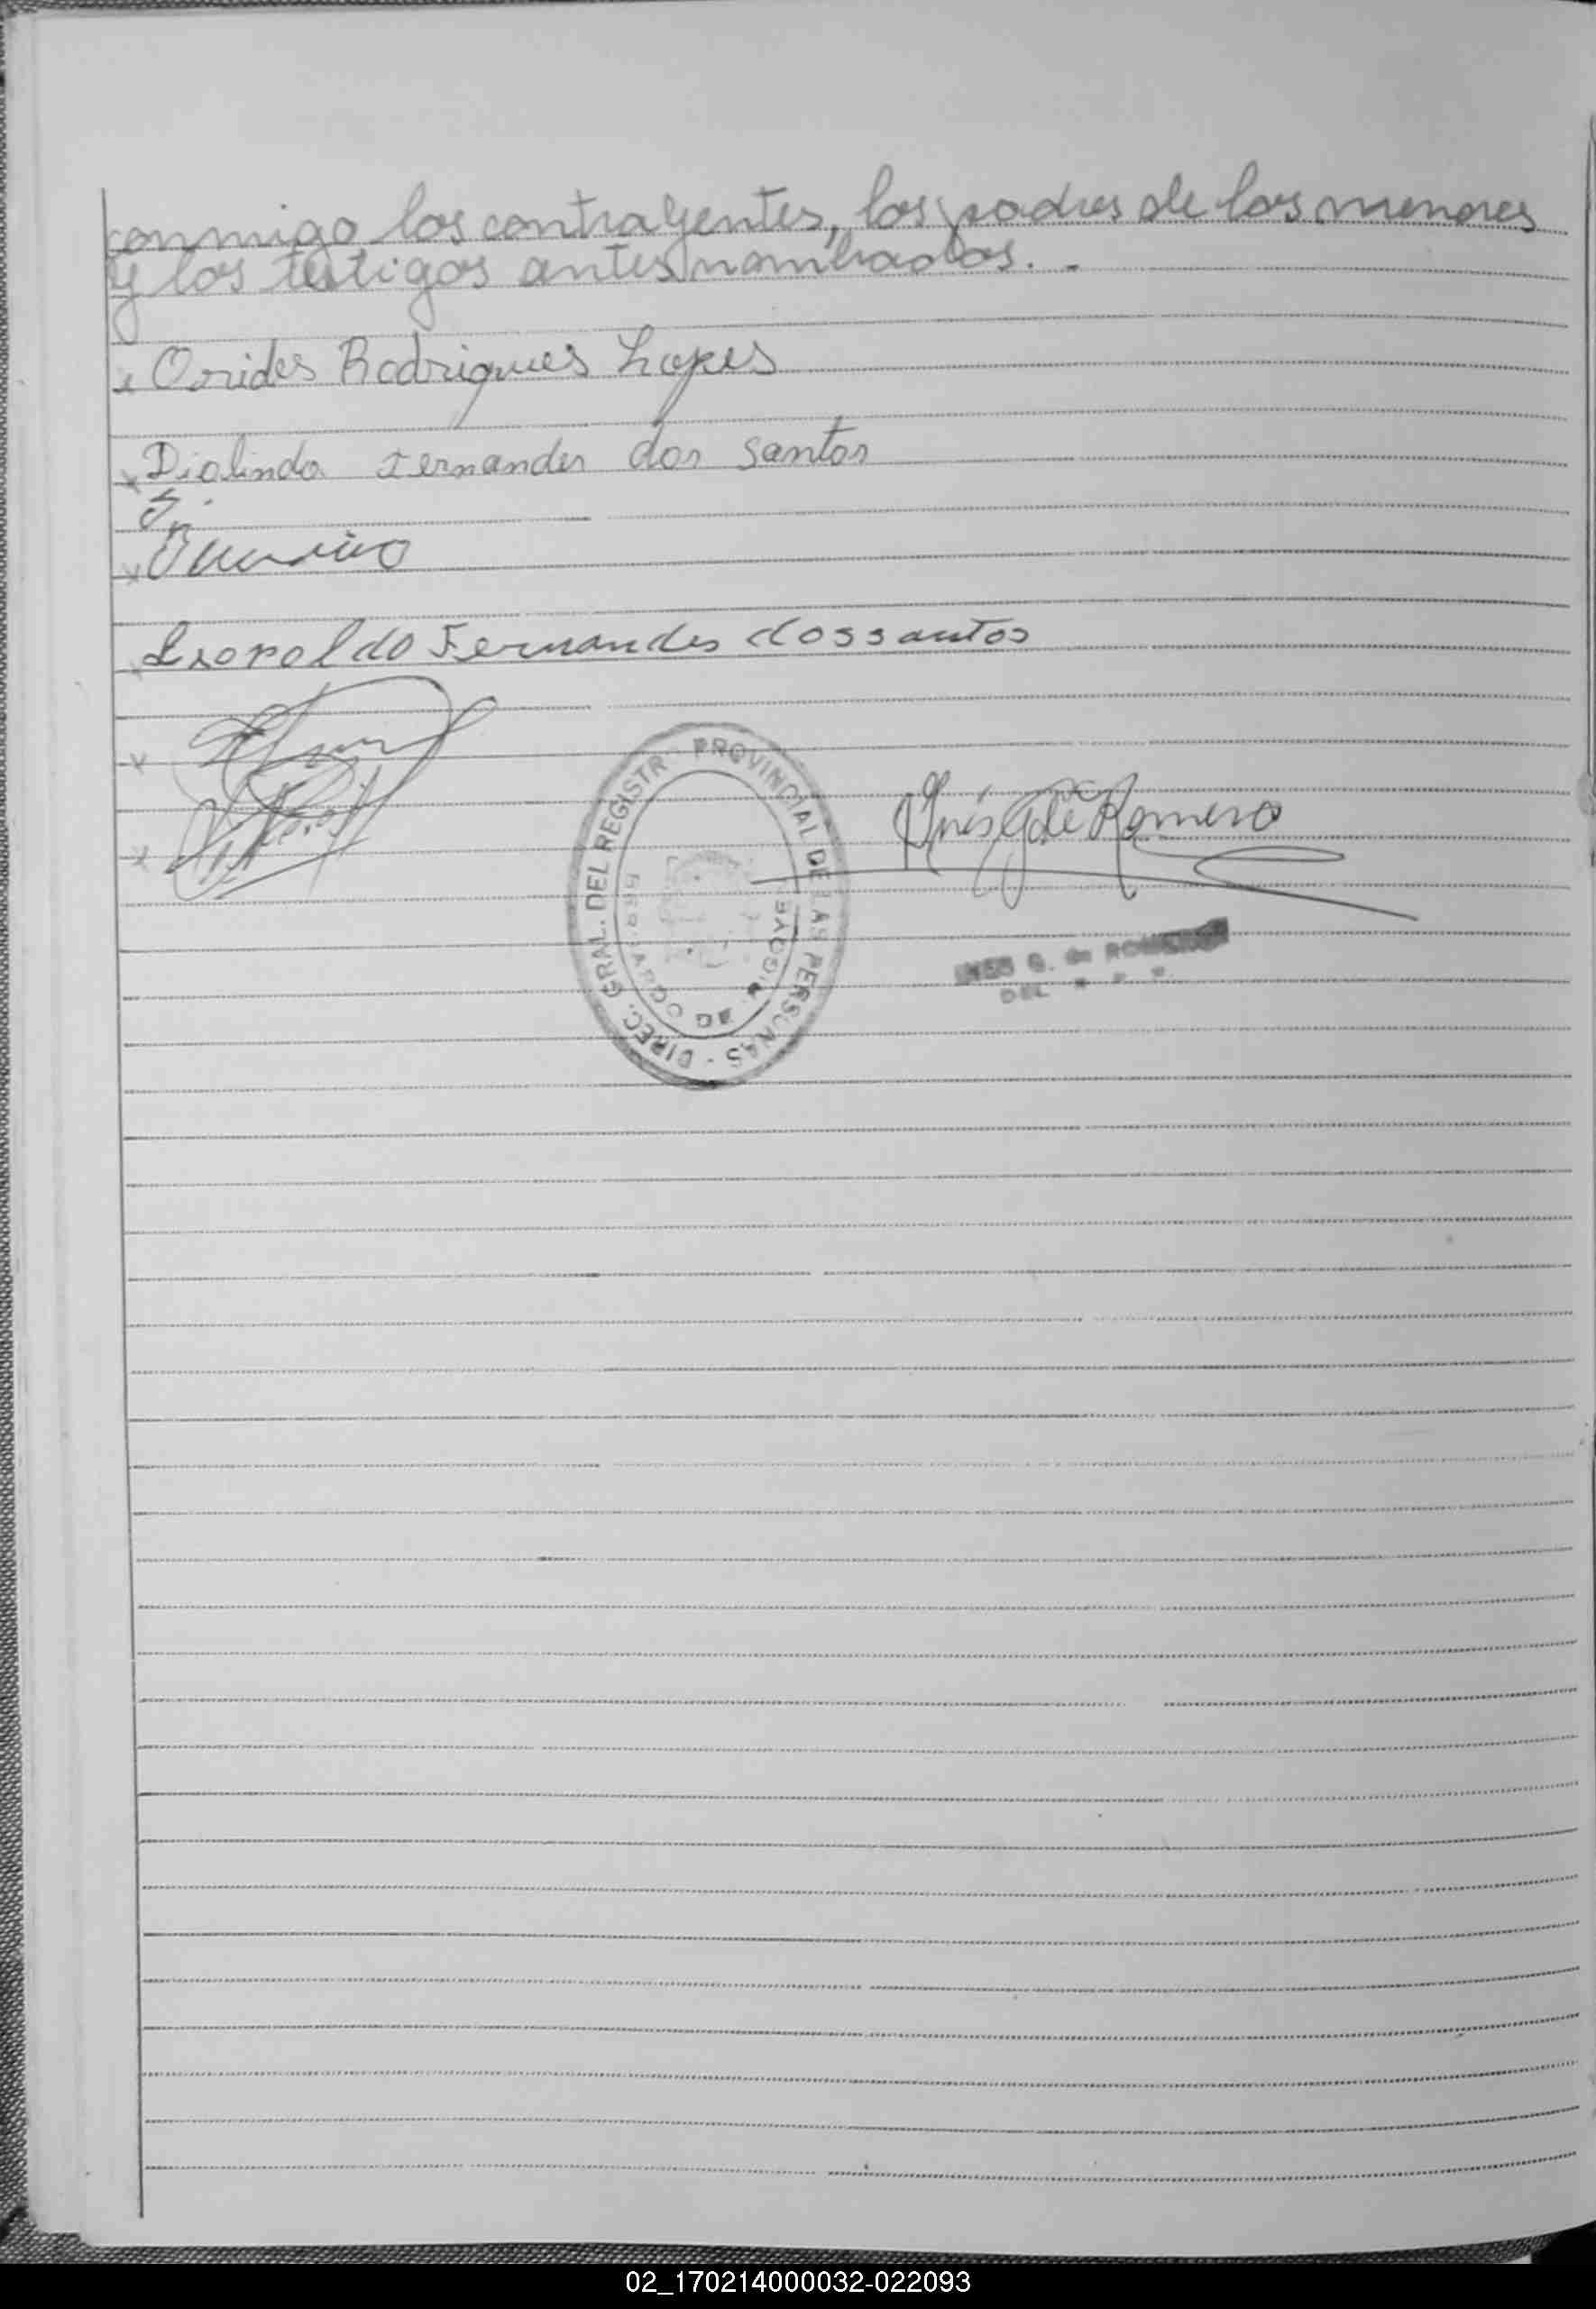 conmigo los contrayentes, los padres de los menores
y los testigos antes nombrados. -
x Orides Rodrigues Lopes
x Dialinda Fernandes dos Santos
x
Leopoldo Fernandes dossantos
x
x
DIREC. GRAL. DEL REGISTR. PROVINCIAL DE LAS PERSONAS -
Inés G. de Romero
INES G. de ROMERO
DEL
02_170214000032-022093